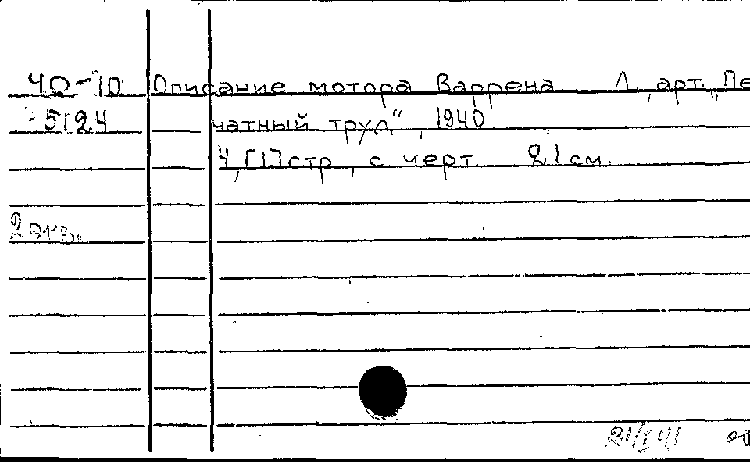 40-10 Описание мотора Варрена Л, арт. „Пе
5124 чатный труд“, 1940
4, [1] стр, с черт 21 см.
2 экз.